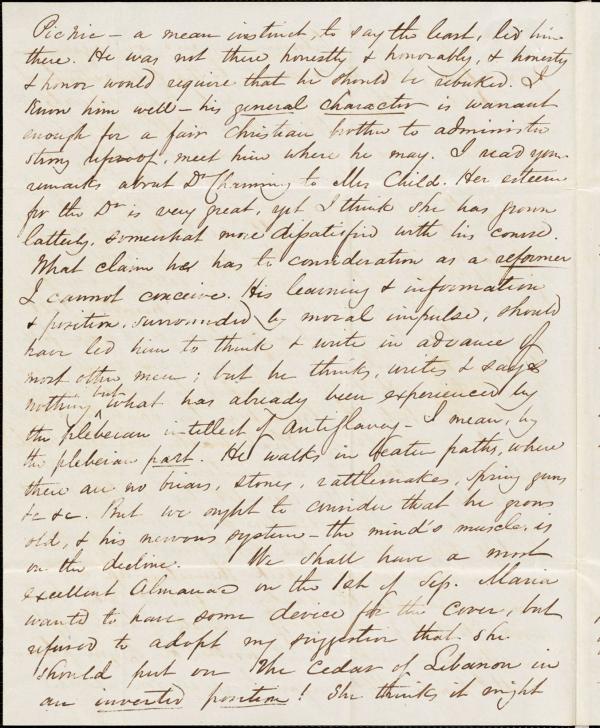 Picnic — a mean instinct, to say the least, led him
there. He was not there honestly & honorably, & honesty
& honor would require that he should be rebuked. I
know him well — his general character is warrant
enough for a fair Christian brother to administer
strong reproof, meet him where he may. I read your
remarks about Dr Channing to Mrs Child. Her esteem
for the Dr is very great, yet I think she has grown
latterly, somewhat more dissatisfied with his course.
What claim he has to consideration as a reformer
I cannot conceive. His learning & information
& position, surrounded by moral impulse, should
have led him to think & write in advance of
most other men; but he thinks, writes & says
nothing but what has already been experienced by
the plebeian intellect of Antislavery — I mean, by
the plebeian part. He walks in beaten paths, where
there are no briars, stones, rattlesnakes, spring guns
&c &c. But we ought to consider that he grows
old, & his nervous system — the mind's muscle, is
on the decline. We shall have a most
excellent Almanac on the 1st of Sep. Maria
wanted to have some device for the cover, but
refused to adopt my suggestion that she
should put on the Cedar of Lebanon in
an inverted position! She thinks it might